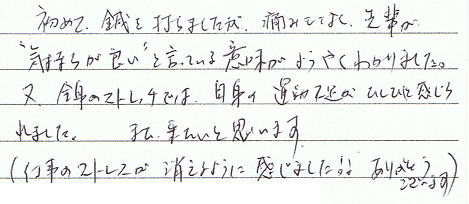 初めて、鍼を打ちましたが、痛みもなく、先輩が
"気持ちが良い"と言っている意味がようやくわかりました。
又、全身のストレッチでは、自身の運動不足がひしひと感じら
れました。 また、来たいと思います
(仕事のストレスが 消えるように 感じました!! ありがとう
ございます)